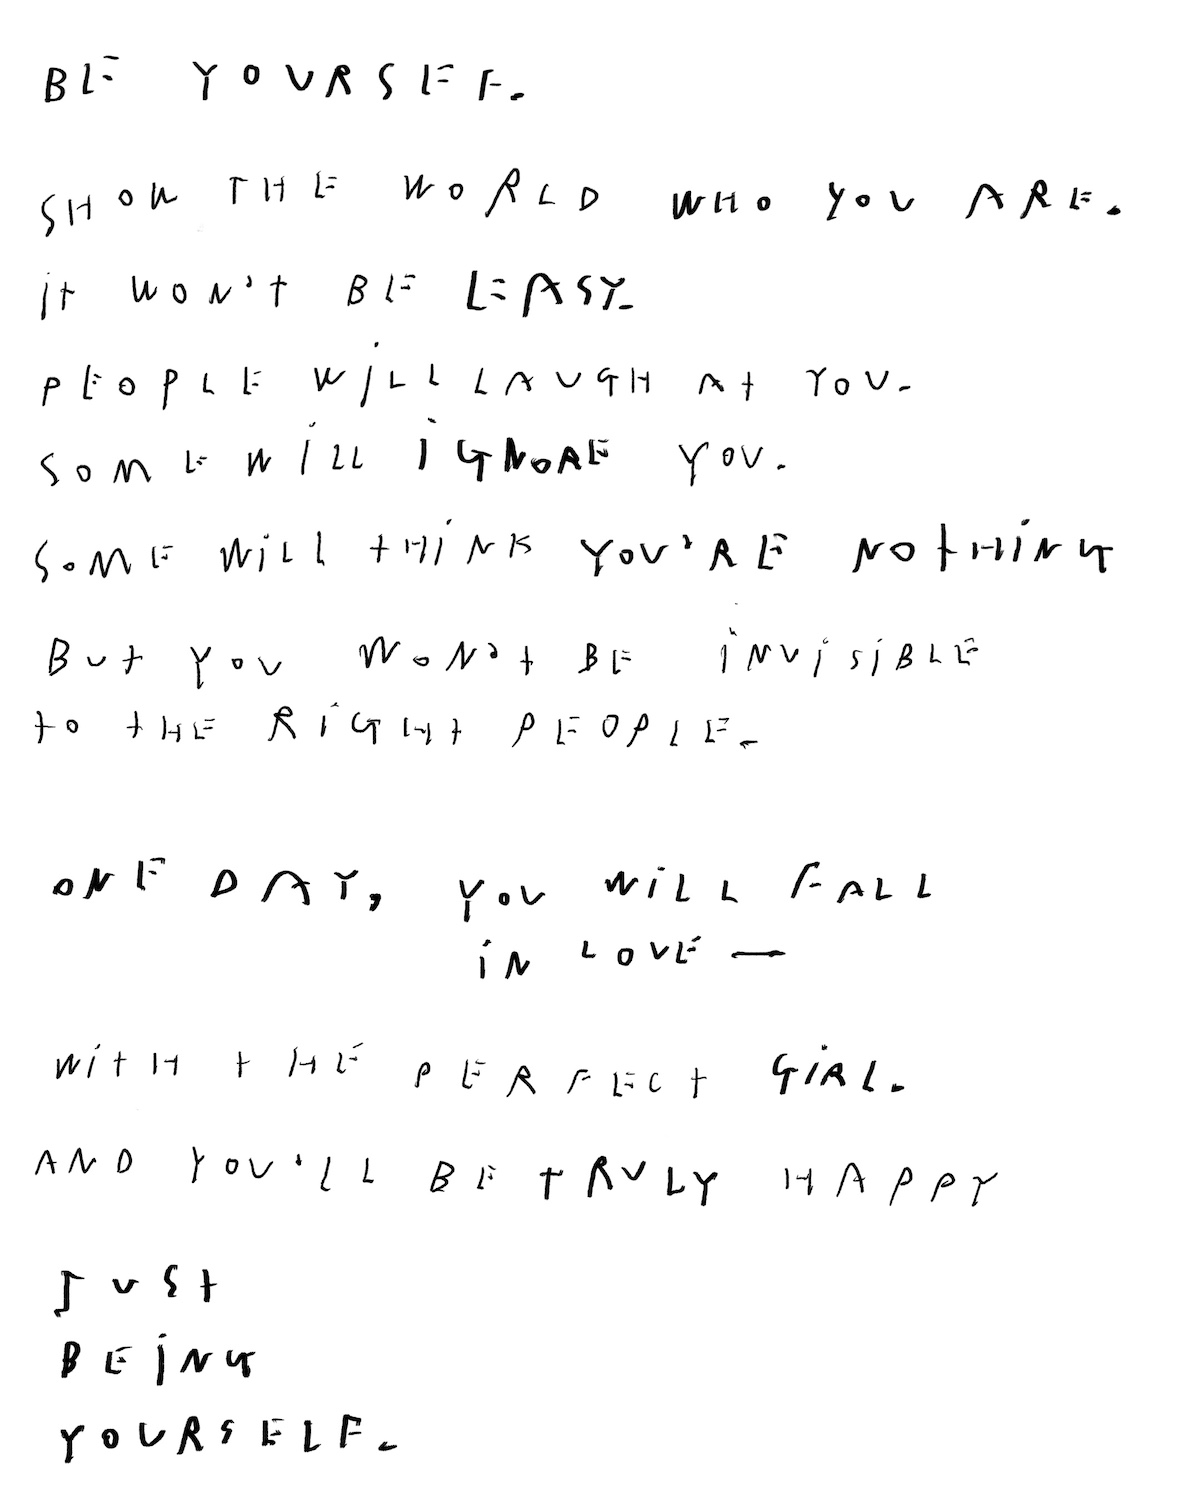 BE YOURSEF.
SHOW THE WORLD WHO YOU ARE.
iT WON'T BE EASY.
PEOPLE WiLL LAUGH AT YOU.
SOME WiLL iGNORE YOU.
SOME WiLL THiNK YOU'RE NOTHiNG
BUT YOU WON'T BE iNViSiBLE
TO THE RiGHT PEOPLE.
ONE DAY, YOU WiLL FALL
iN LOVE —
WiTH THE PERFECT GiRL.
AND YOU'LL BE TRULY HAPPY
JUST
BEiNG
YOURSELF.